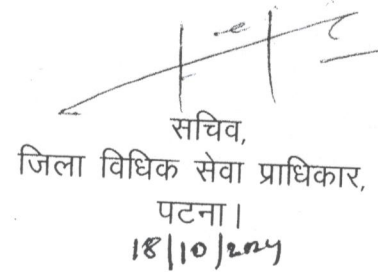 सचिव,
जिला विधिक सेवा प्राधिकार,
पटना।
18/10/2024